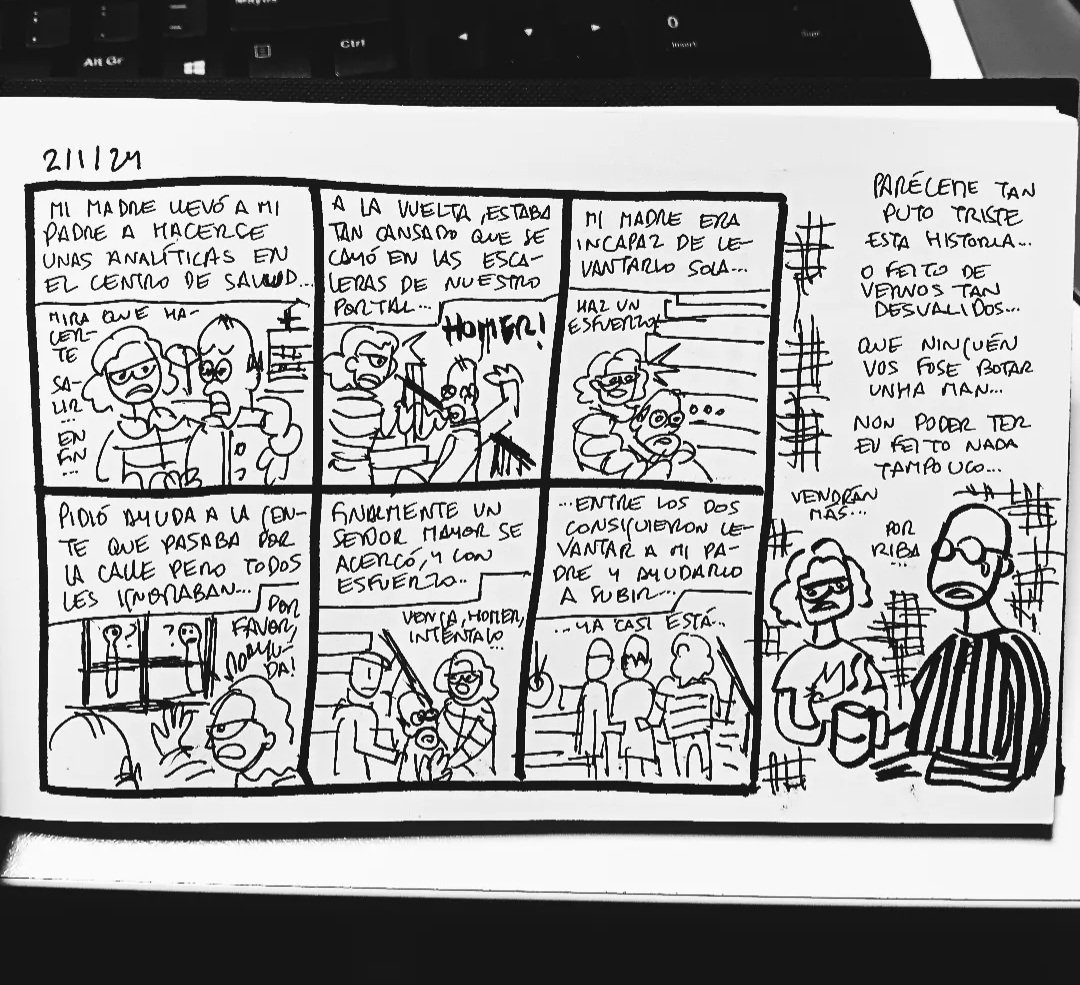 Alt Gr
Ctrl
0
Insert
2/1/24
MI MADRE LLEVÓ A MI
PADRE A HACERCE
UNAS ANALÍTICAS EN
EL CENTRO DE SALUD...
MIRA QUE HA-
CER-
TE
SA-
LIR
...
EN
FIN
...
A LA VUELTA, ESTABA
TAN CANSADO QUE SE
CAYÓ EN LAS ESCA-
LERAS DE NUESTRO
PORTAL...
HOMER!
MI MADRE ERA
INCAPAZ DE LE-
VANTARLO SOLA...
HAZ UN
ESFUERZO!
...
PIDIÓ AYUDA A LA GEN-
TE QUE PASABA POR
LA CALLE PERO TODOS
LES IGNORABAN...
?
?
POR
FAVOR,
AYU-
DA!
FINALMENTE UN
SEÑOR MAYOR SE
ACERCÓ, Y CON
ESFUERZO...
VENGA, HOMER,
INTÉNTALO
...
...ENTRE LOS DOS
CONSIGUIERON LE-
VANTAR A MI PA-
DRE Y AYUDARLO
A SUBIR...
...YA CASI ESTÁ...
PARÉCEME TAN
PUTO TRISTE
ESTA HISTORIA...
O FEITO DE
VERNOS TAN
DESVALIDOS...
QUE NINGUÉN
VOS FOSE BOTAR
UNHA MAN...
NON PODER TER
EU FEITO NADA
TAMPOUCO...
VENDRÁN
MÁS...
POR
RIBA
...